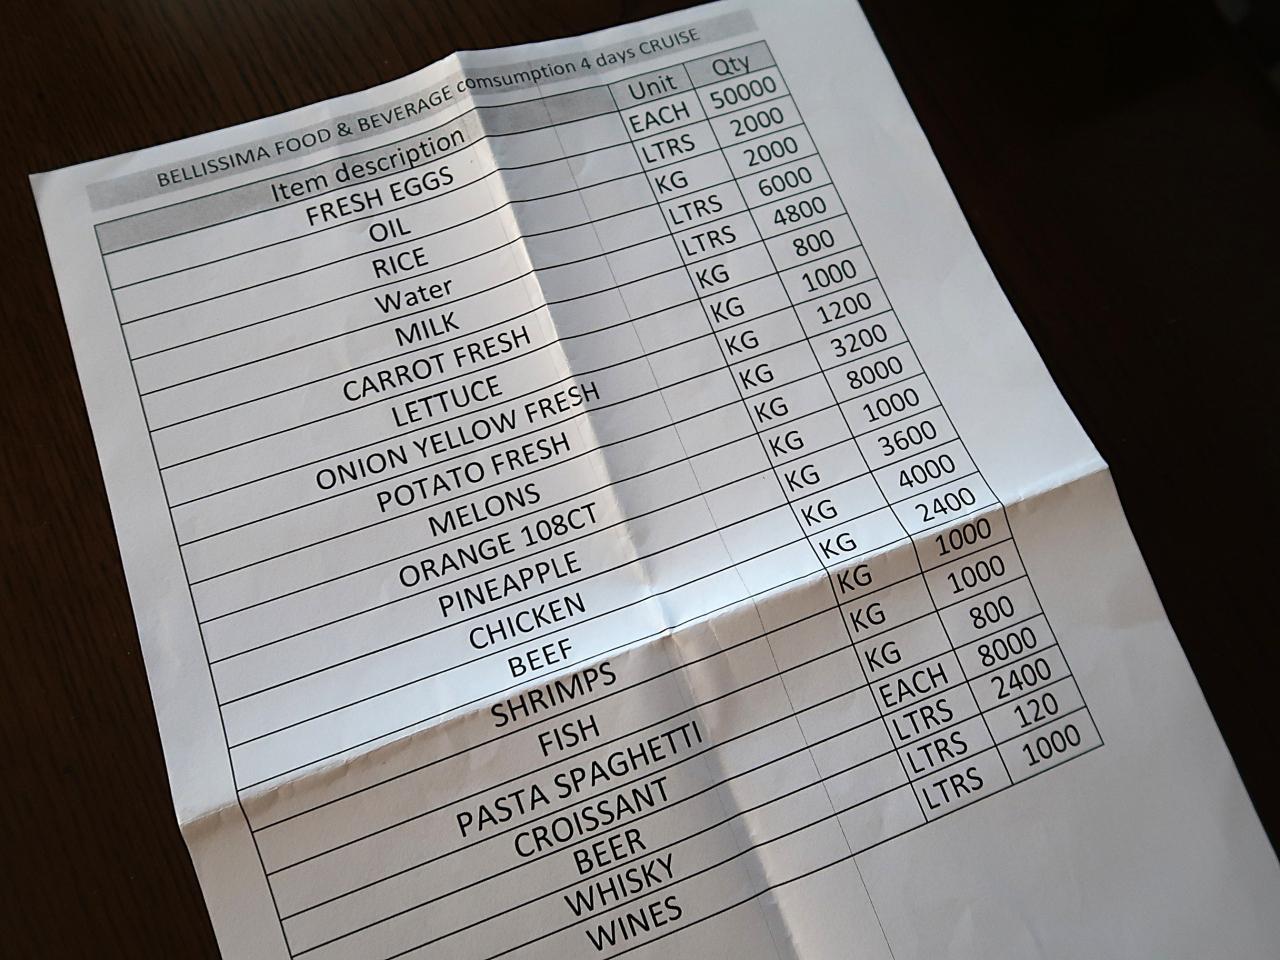 BELLISSIMA FOOD & BEVERAGE comsumption 4 days CRUISE
Item description Unit Qty
FRESH EGGS EACH 50000
OIL LTRS 2000
RICE KG 2000
Water LTRS 6000
MILK LTRS 4800
CARROT FRESH KG 800
LETTUCE KG 1000
ONION YELLOW FRESH KG 1200
POTATO FRESH KG 3200
MELONS KG 8000
ORANGE 108CT KG 1000
PINEAPPLE KG 3600
CHICKEN KG 4000
BEEF KG 2400
SHRIMPS KG 1000
FISH KG 1000
PASTA SPAGHETTI KG 800
CROISSANT EACH 8000
BEER LTRS 2400
WHISKY LTRS 120
WINES LTRS 1000